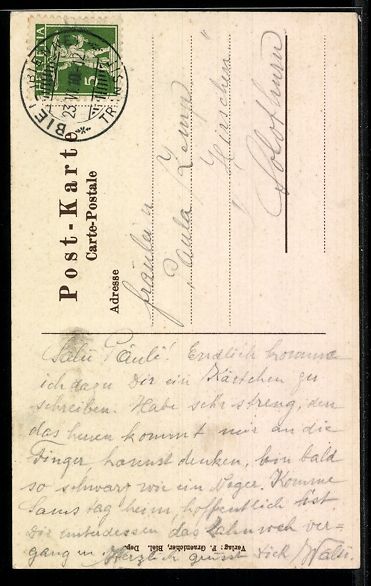 BIEL (BIENNE)
5
Post-Karte
Carte-Postale
Adresse
Fräulein
Paula Zemp
"Hirschen"
Solothurn
Salü Päuli! Endlich komme
ich dazu Dir ein Kärtchen zu
schreiben. Habe sehr streng, den
das heuen kommt mir an die
Finger, kannst denken, bin bald
so schwarz wie ein Neger. Komme
Samstag heim, hoffentlich ist
Dir unterdessen das Zahnweh ver-
gangen. Herzlich grüsst Dich Walti.
Verlag: P. Graendelmeyer, Biel.